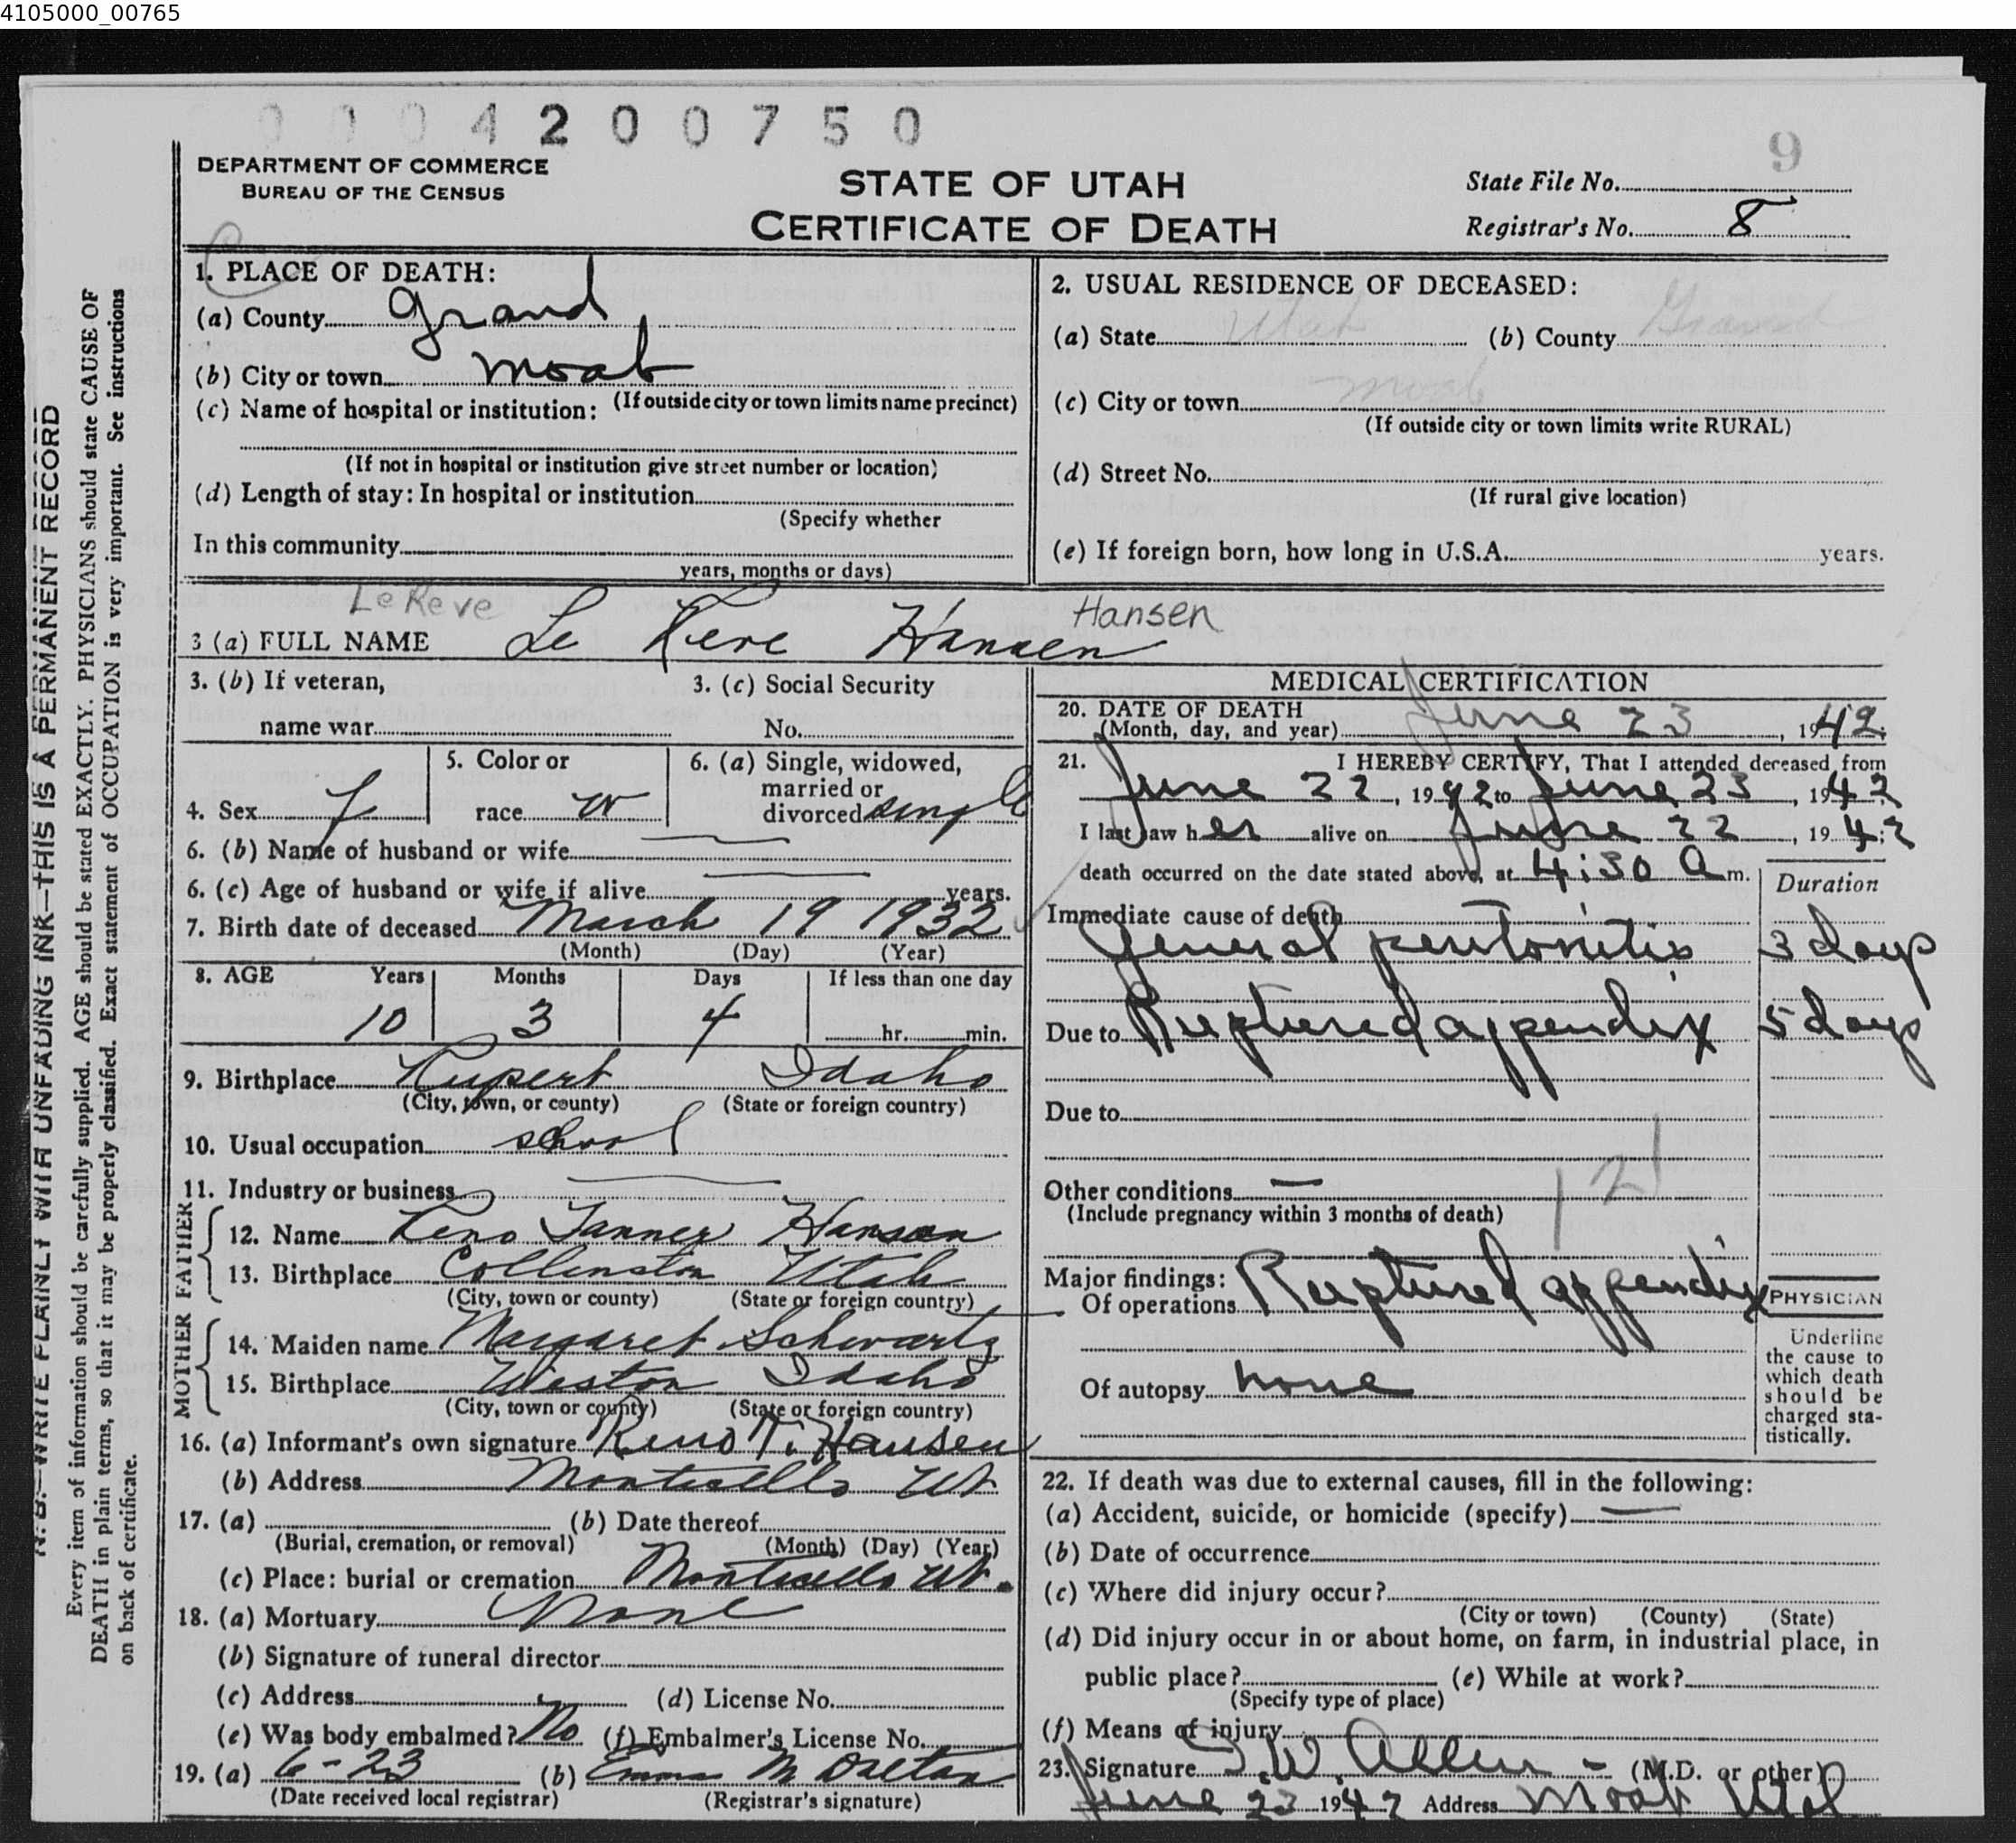 4105000_00765
0004200750
9
DEPARTMENT OF COMMERCE
BUREAU OF THE CENSUS
STATE OF UTAH
CERTIFICATE OF DEATH
State File No.
Registrar's No. 8
N. B.—WRITE PLAINLY WITH UNFADING INK—THIS IS A PERMANENT RECORD
Every item of information should be carefully supplied. AGE should be stated EXACTLY. PHYSICIANS should state CAUSE OF
DEATH in plain terms, so that it may be properly classified. Exact statement of OCCUPATION is very important. See instructions
on back of certificate.
1. PLACE OF DEATH:
(a) County Grand
(b) City or town Moab
(c) Name of hospital or institution: (If outside city or town limits name precinct)
(If not in hospital or institution give street number or location)
(d) Length of stay: In hospital or institution
(Specify whether
In this community
years, months or days)
2. USUAL RESIDENCE OF DECEASED:
(a) State Utah (b) County Grand
(c) City or town Moab
(If outside city or town limits write RURAL)
(d) Street No.
(If rural give location)
(e) If foreign born, how long in U.S.A. years.
LeReve Hansen
3 (a) FULL NAME Le Reve Hansen
3. (b) If veteran,
name war
3. (c) Social Security
No.
4. Sex F
5. Color or
race W
6. (a) Single, widowed,
married or
divorced single
6. (b) Name of husband or wife
6. (c) Age of husband or wife if alive years.
7. Birth date of deceased March 19 1932
(Month) (Day) (Year)
8. AGE Years Months Days If less than one day
10 3 4 hr. min.
9. Birthplace Rupert Idaho
(City, town, or county) (State or foreign country)
10. Usual occupation school
11. Industry or business
FATHER
12. Name Reno Tanner Hansen
13. Birthplace Collinston Utah
(City, town or county) (State or foreign country)
MOTHER
14. Maiden name Margaret Schwartz
15. Birthplace Weston Idaho
(City, town or county) (State or foreign country)
16. (a) Informant's own signature Reno T. Hansen
(b) Address Monticello Ut
17. (a) (b) Date thereof
(Burial, cremation, or removal) (Month) (Day) (Year)
(c) Place: burial or cremation Monticello Ut.
18. (a) Mortuary None
(b) Signature of funeral director
(c) Address (d) License No.
(e) Was body embalmed? No (f) Embalmer's License No.
19. (a) 6-23 (b) Emma M
(Date received local registrar) (Registrar's signature)
MEDICAL CERTIFICATION
20. DATE OF DEATH
(Month, day, and year) June 23, 1942.
21. I HEREBY CERTIFY, That I attended deceased from
June 22, 1942 to June 23, 1942
I last saw her alive on June 22, 1942;
death occurred on the date stated above, at 4:30 A m.
Duration
Immediate cause of death
General peritonitis 3 days
Due to Ruptured appendix 5 days
Due to
121
Other conditions —
(Include pregnancy within 3 months of death)
Major findings:
Of operations Ruptured appendix
Of autopsy none
PHYSICIAN
Underline
the cause to
which death
should be
charged sta-
tistically.
22. If death was due to external causes, fill in the following:
(a) Accident, suicide, or homicide (specify) —
(b) Date of occurrence
(c) Where did injury occur?
(City or town) (County) (State)
(d) Did injury occur in or about home, on farm, in industrial place, in
public place? (e) While at work?
(Specify type of place)
(f) Means of injury
23. Signature I. W. Allen – (M.D. or other)
June 23 1942 Address Moab Utah